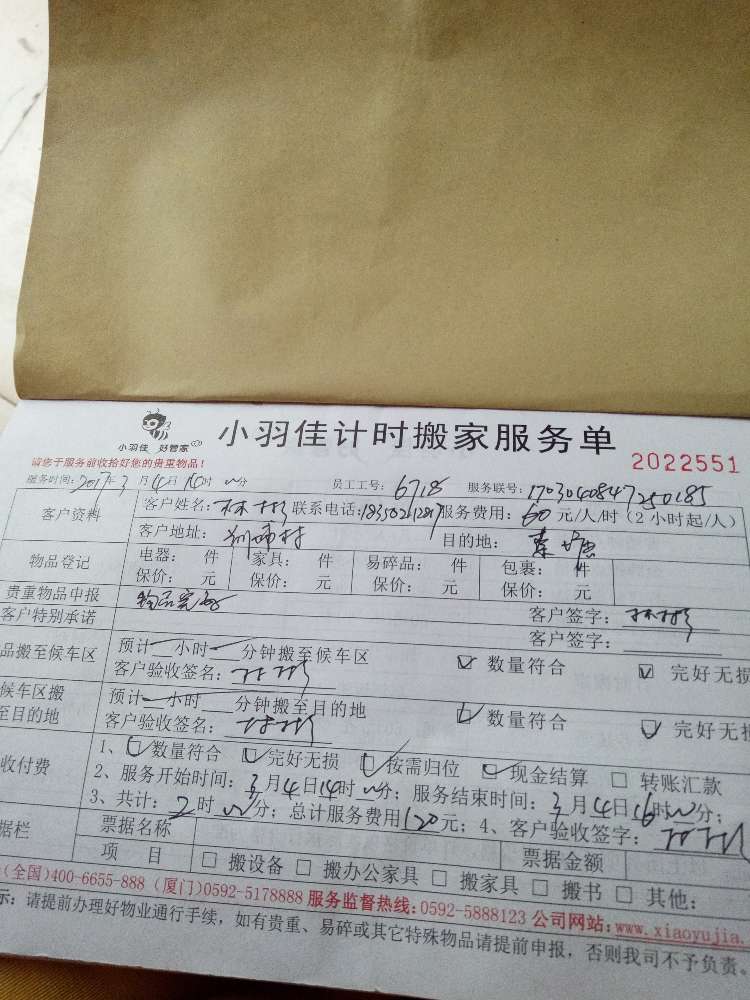 小羽佳 好管家
小羽佳计时搬家服务单
2022551
请您于服务前收拾好您的贵重物品！
服务时间：2017年3月4日14时 分 员工工号：6718 服务联号：170304084725 0185
客户资料 客户姓名：林 联系电话： 服务费用：60元/人/时（2小时起/人）
客户地址： 村 目的地：
物品登记 电器： 件 家具： 件 易碎品： 件 包裹： 件
保价： 元 保价： 元 保价： 元 保价： 元
贵重物品申报 物品完好 客户签字：
客户特别承诺 客户签字：
品搬至候车区 预计 小时 分钟搬至候车区
客户验收签名： 数量符合 完好无损
候车区搬至目的地 预计 小时 分钟搬至目的地
客户验收签名： 数量符合 完好无损
收付费 1、数量符合 完好无损 按需归位 现金结算 转账汇款
2、服务开始时间：3月4日14时 分；服务结束时间：3月4日16时 分；
3、共计：2时 分；总计服务费用120元；4、客户验收签字：
据栏 票据名称 票据金额
项 目 搬设备 搬办公家具 搬家具 搬书 其他：
(全国)400-6655-888 (厦门)0592-5178888 服务监督热线：0592-5888123 公司网站：www.xiaoyujia.
示：请提前办理好物业通行手续，如有贵重、易碎或其它特殊物品请提前申报，否则我司不予负责。